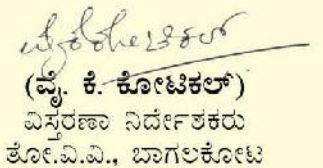 (ವೈ. ಕೆ. ಕೋಟಿಕಲ್)
ವಿಸ್ತರಣಾ ನಿರ್ದೇಶಕರು
ತೋ.ವಿ.ವಿ., ಬಾಗಲಕೋಟ